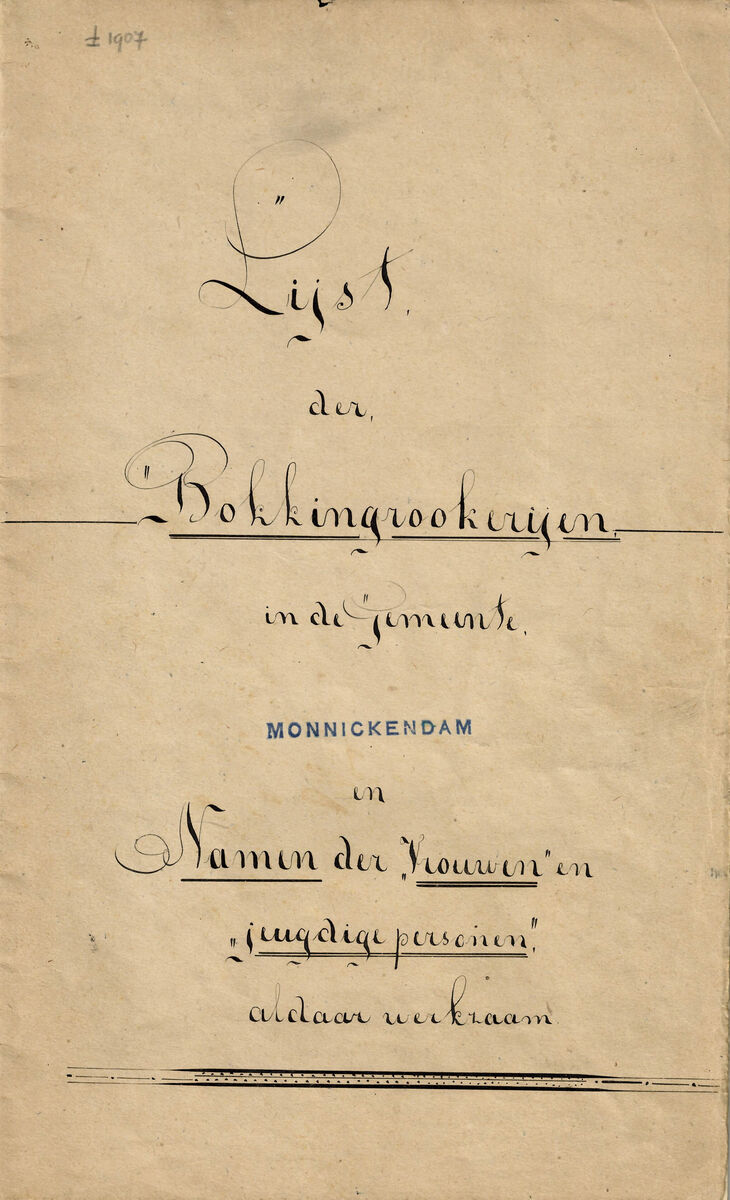 ± 1907
"
Lijst.
der,
"Bokkingrookerijen,
in de "Gemeente,
MONNICKENDAM
en
Namen der „Vrouwen" en
„jeugdige personen",
aldaar werkzaam